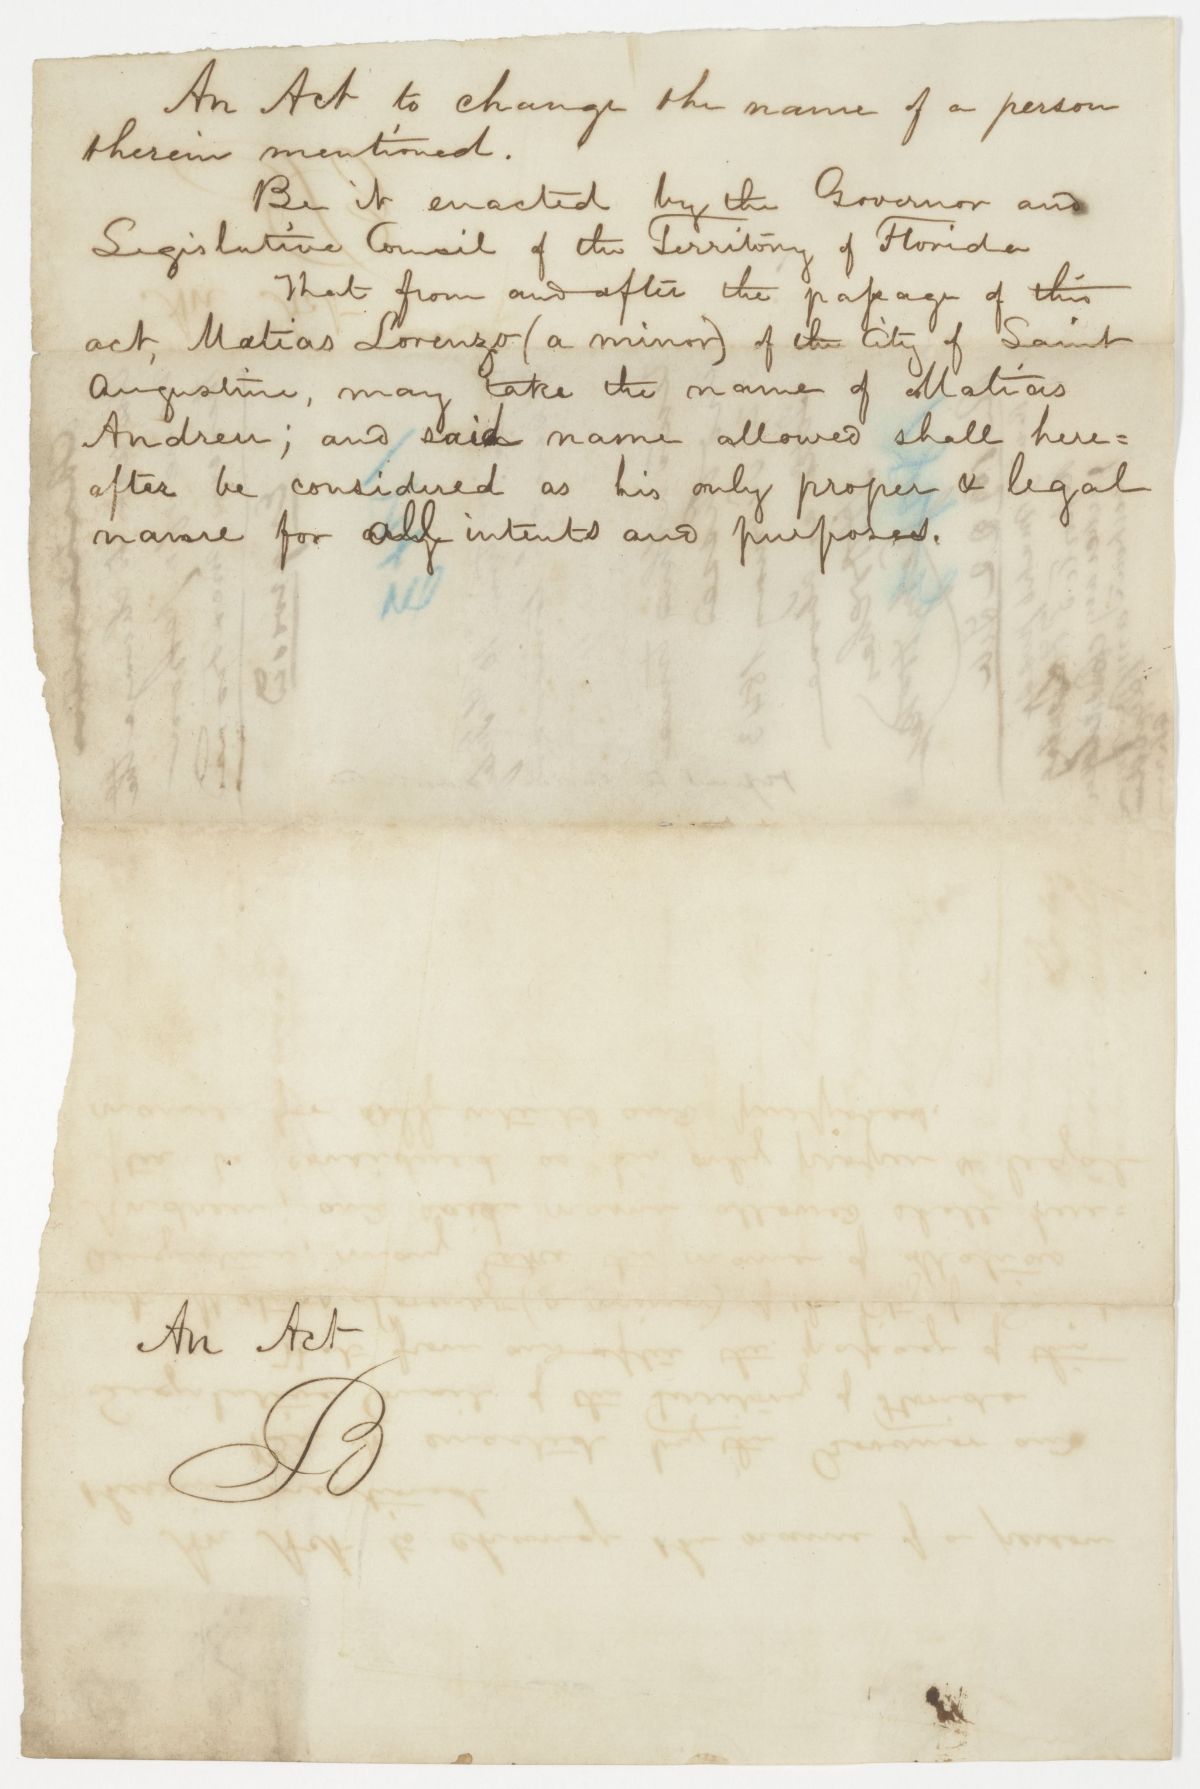 An Act to change the name of a person
therein mentioned.
Be it enacted by the Governor and
Legislative Council of the Territory of Florida
That from and after the passage of this
act, Matias Lorenzo (a minor) of the City of Saint
Augustine, may take the name of Matias
Andreu; and said name allowed shall here=
after be considered as his only proper & legal
name for all intents and purposes.
An Act
B